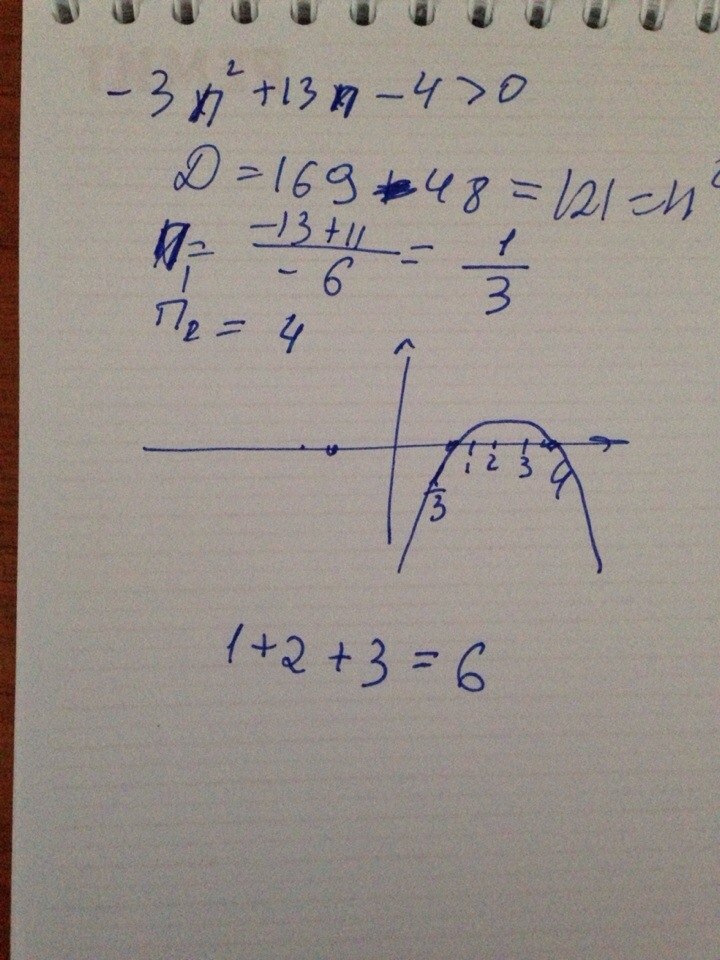 -3n² +13n -4>0
D = 169 - 48 = 121 = 11²
n₁ = (-13+11)/(-6) = 1/3
n₂ = 4
1/3 1 2 3 4
1+2+3 = 6